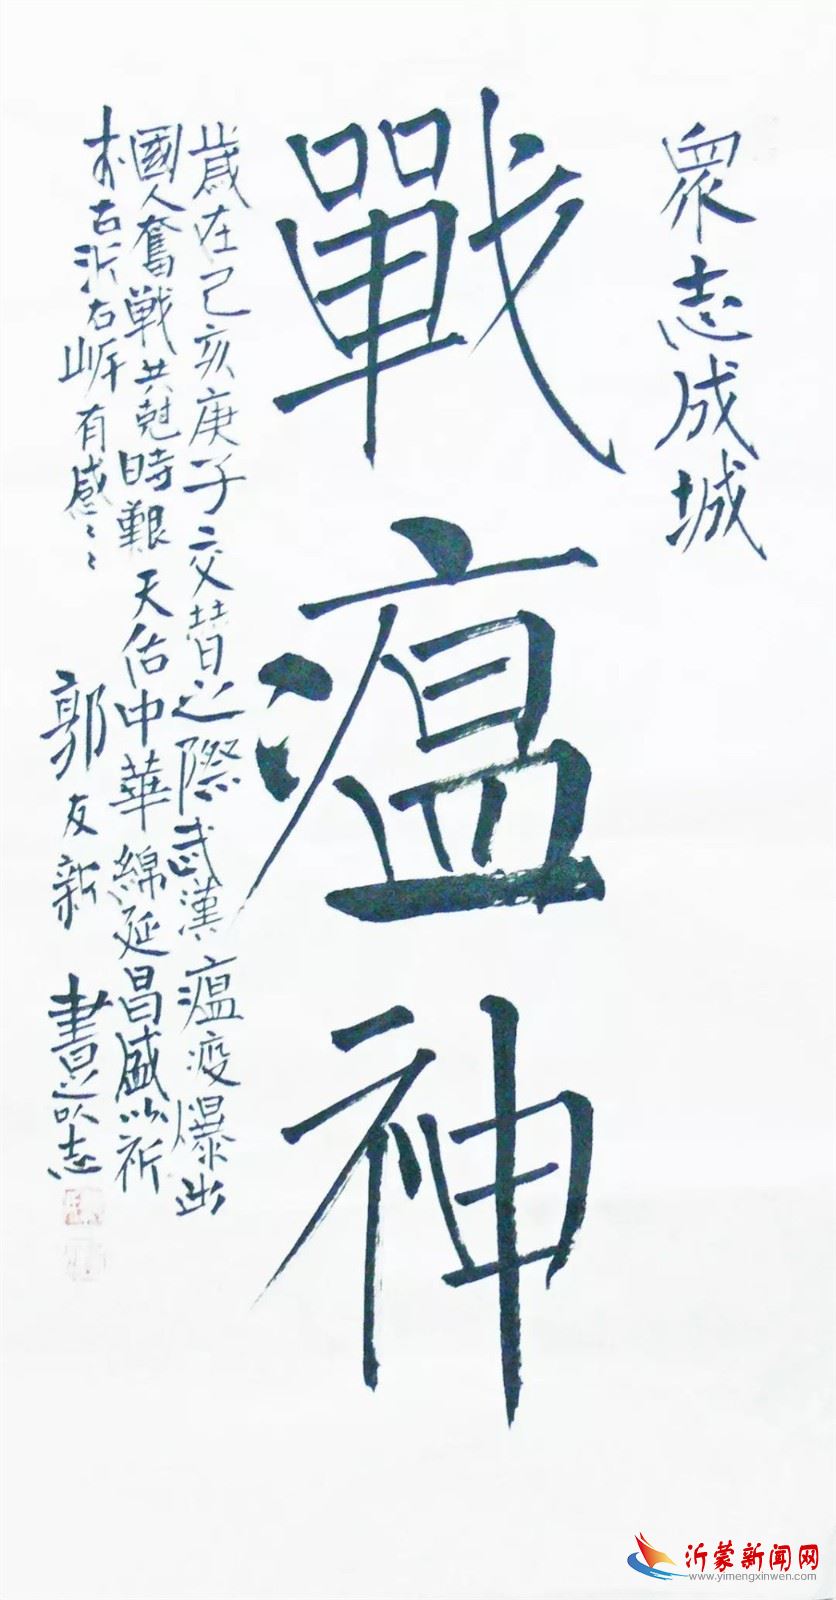 眾志成城
戰瘟神
歲在己亥庚子交替之際武漢瘟疫爆出
國人奮戦共尅時艱天佑中華綿延昌盛以祈
古沂右有感 郭友新 書之以志
沂蒙新闻网
www.yimengxinwen.com